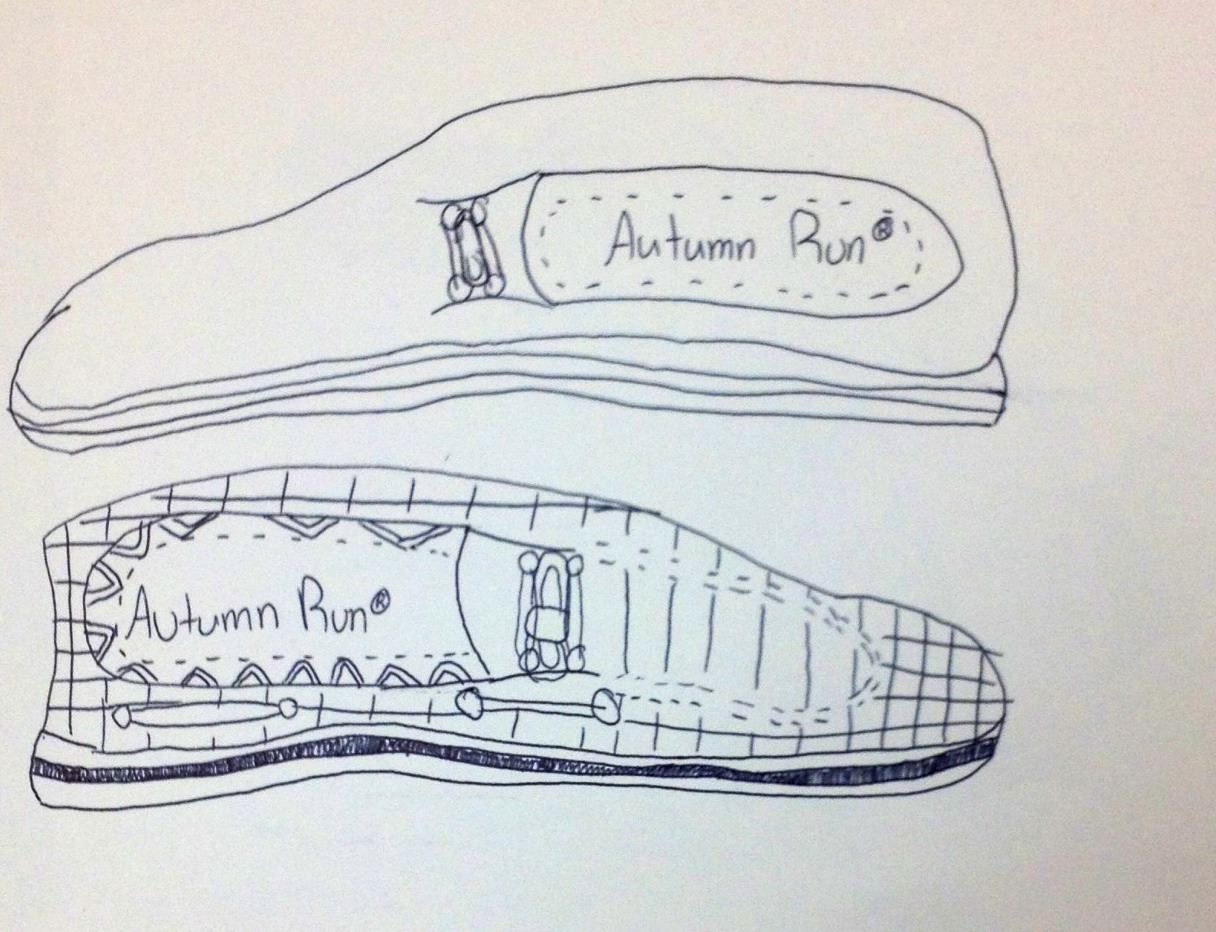 Autumn Run®
Autumn Run®